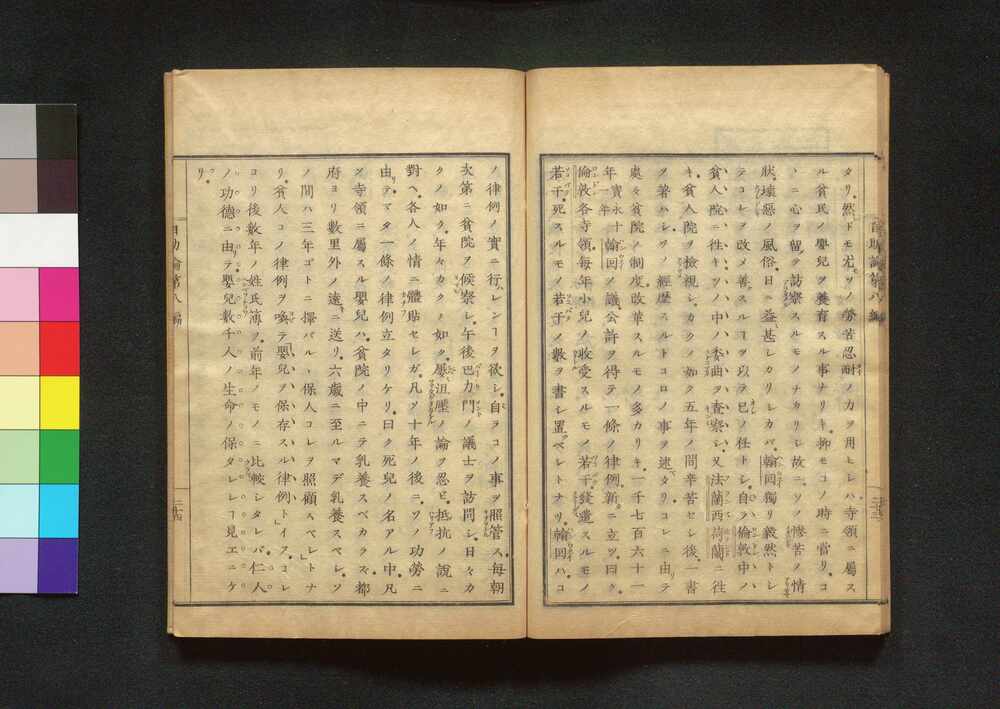 自助論第八編
タリ。然ドモ尤モソノ勞苦忍耐ノ力ヲ用ヒシハ寺領ニ屬ス
ル貧民ノ嬰兒ヲ養育スル事ナリキ。抑モコノ時ニ當リコ
ヽニ心ヲ留メ訪察スルモノナカリシ故ニ。ソノ慘苦ノ情
狀。壊惡ノ風俗。日ニ益甚シカリシカバ。翰回獨リ毅然トシ
テコレヲ改メ善スルヿヲ以テ己ノ任トシ。自ラ倫敦中ノ
貧人院ニ往キ。ソノ中ハ委曲ヲ査察シ。又法蘭西荷蘭ニ往
キ。貧人院ヲ檢視シ。カクノ如ク五年ノ間辛苦セシ後。一書
ヲ著ハシソノ經歷スルトコロノ事ヲ述タリ。コレニ由テ
處々貧院ノ制度。改革スルモノ多カリキ。一千七百六十一
年寶永十一年翰回ノ議。公許ヲ得テ一條ノ律例新ニ立ツ。曰ク。
倫敦各寺領。每年小兒ノ收受スルモノ。若干。錢遣スルモノ
若干。死スルモノ若干ノ數ヲ書シ置ベシトナリ。翰回ハコ
ノ律例ノ實ニ行ハレンヿヲ欲シ。自ラコノ事ヲ照管ス。每朝
次第ニ貧院ヲ候察シ。午後巴力門ノ議士ヲ訪問シ。日々カ
クノ如ク。年々カクノ如ク。屢沮壓ノ論ヲ忍ビ。抵抗ノ說ニ
對ヘ。各人ノ情ニ體貼セシガ。凡ソ十年ノ後ニ。ソノ功勞ニ
由テ。マタ一條ノ律例立タリケリ。曰ク死兒ノ名アル中。凡
ソ寺領ニ屬スル嬰兒ハ。貧院ノ中ニテ乳養スベカラズ。都
府ヨリ數里外ノ遠ニ送リ。六歲ニ至ルマデ乳養スベシ。ソ
ノ間ハ三年ゴトニ擇バル丶保人コレヲ照顧スベシ」トナ
リ。貧人コノ律例ヲ喚テ嬰兒ヲ保存スル律例トイフ。コレ
ヨリ後數年ノ姓氏簿ヲ。前年ノモノニ比較シタレバ。仁人
ノ功德ニ由テ嬰兒數千人ノ生命ノ保タレシヿ見エニケ
リ。
自助論第八編